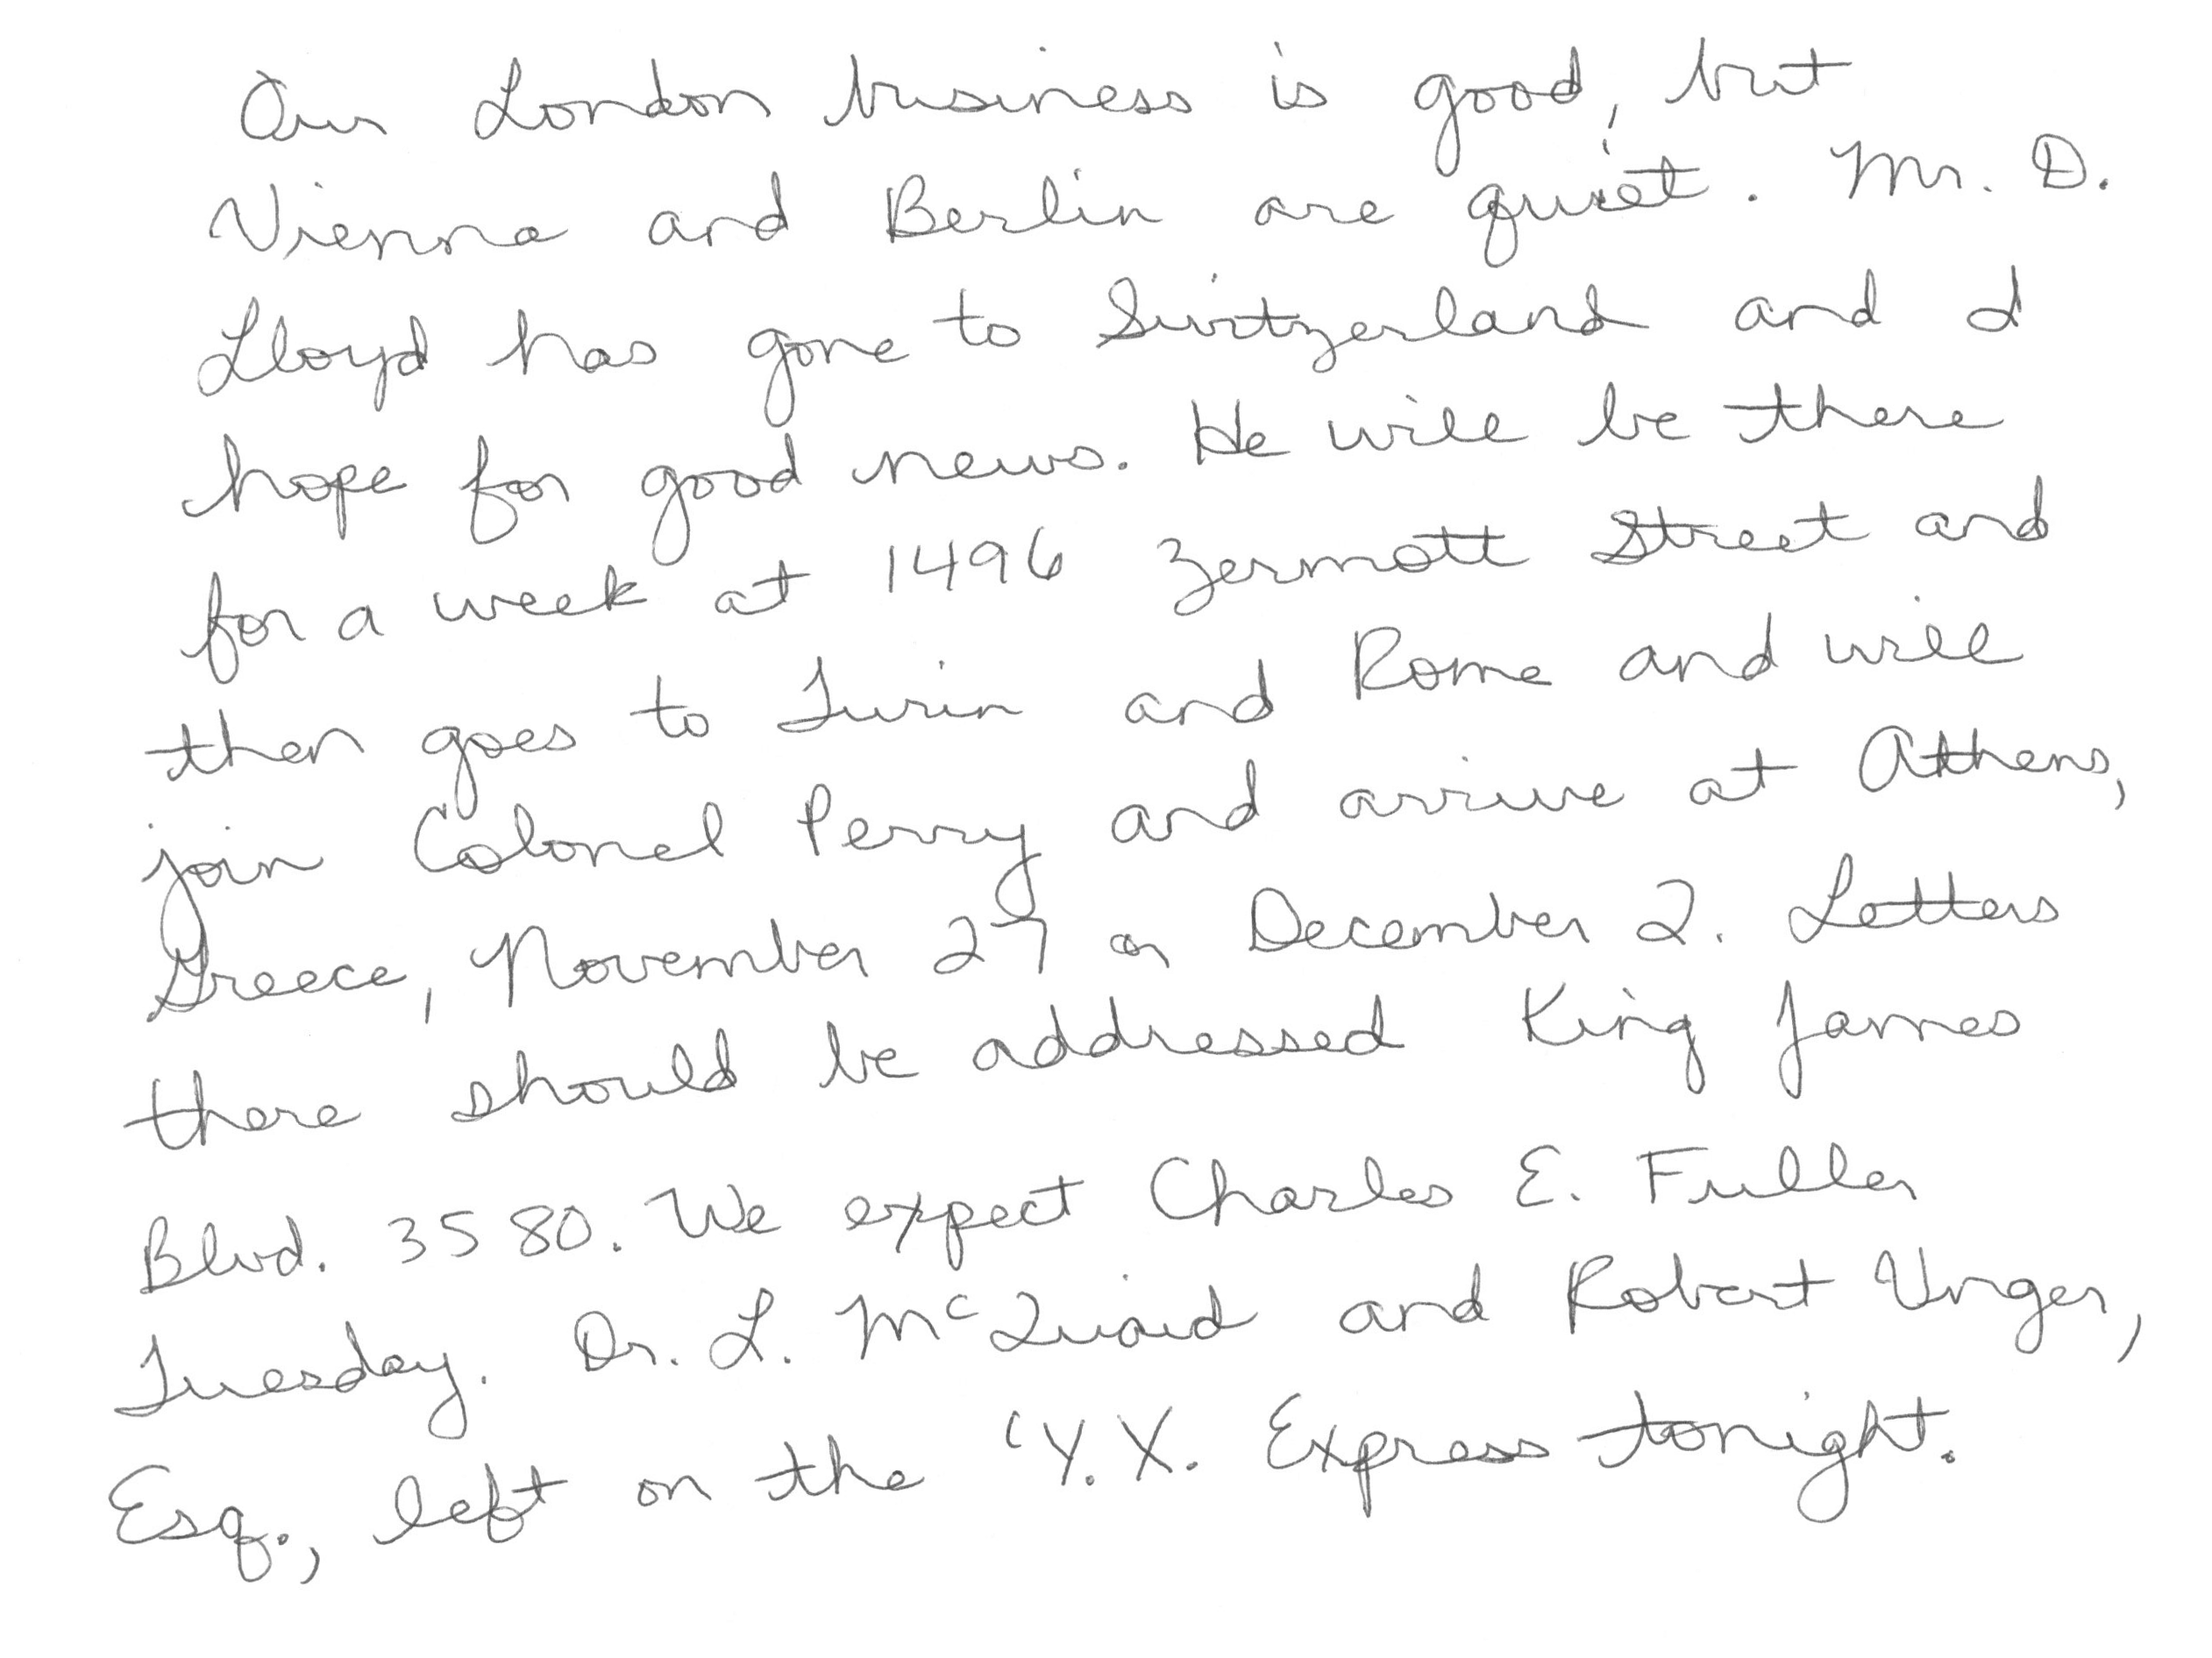 Our London business is good, but
Vienna and Berlin are quiet. Mr. D.
Lloyd has gone to Switzerland and I
hope for good news. He will be there
for a week at 1496 Zermott Street and
then goes to Turin and Rome and will
join Colonel Perry and arrive at Athens,
Greece, November 27 or December 2. Letters
there should be addressed King James
Blvd. 3580. We expect Charles E. Fuller
Tuesday. Dr. L. McQuaid and Robert Unger,
Esq., left on the 'Y.X. Express tonight.